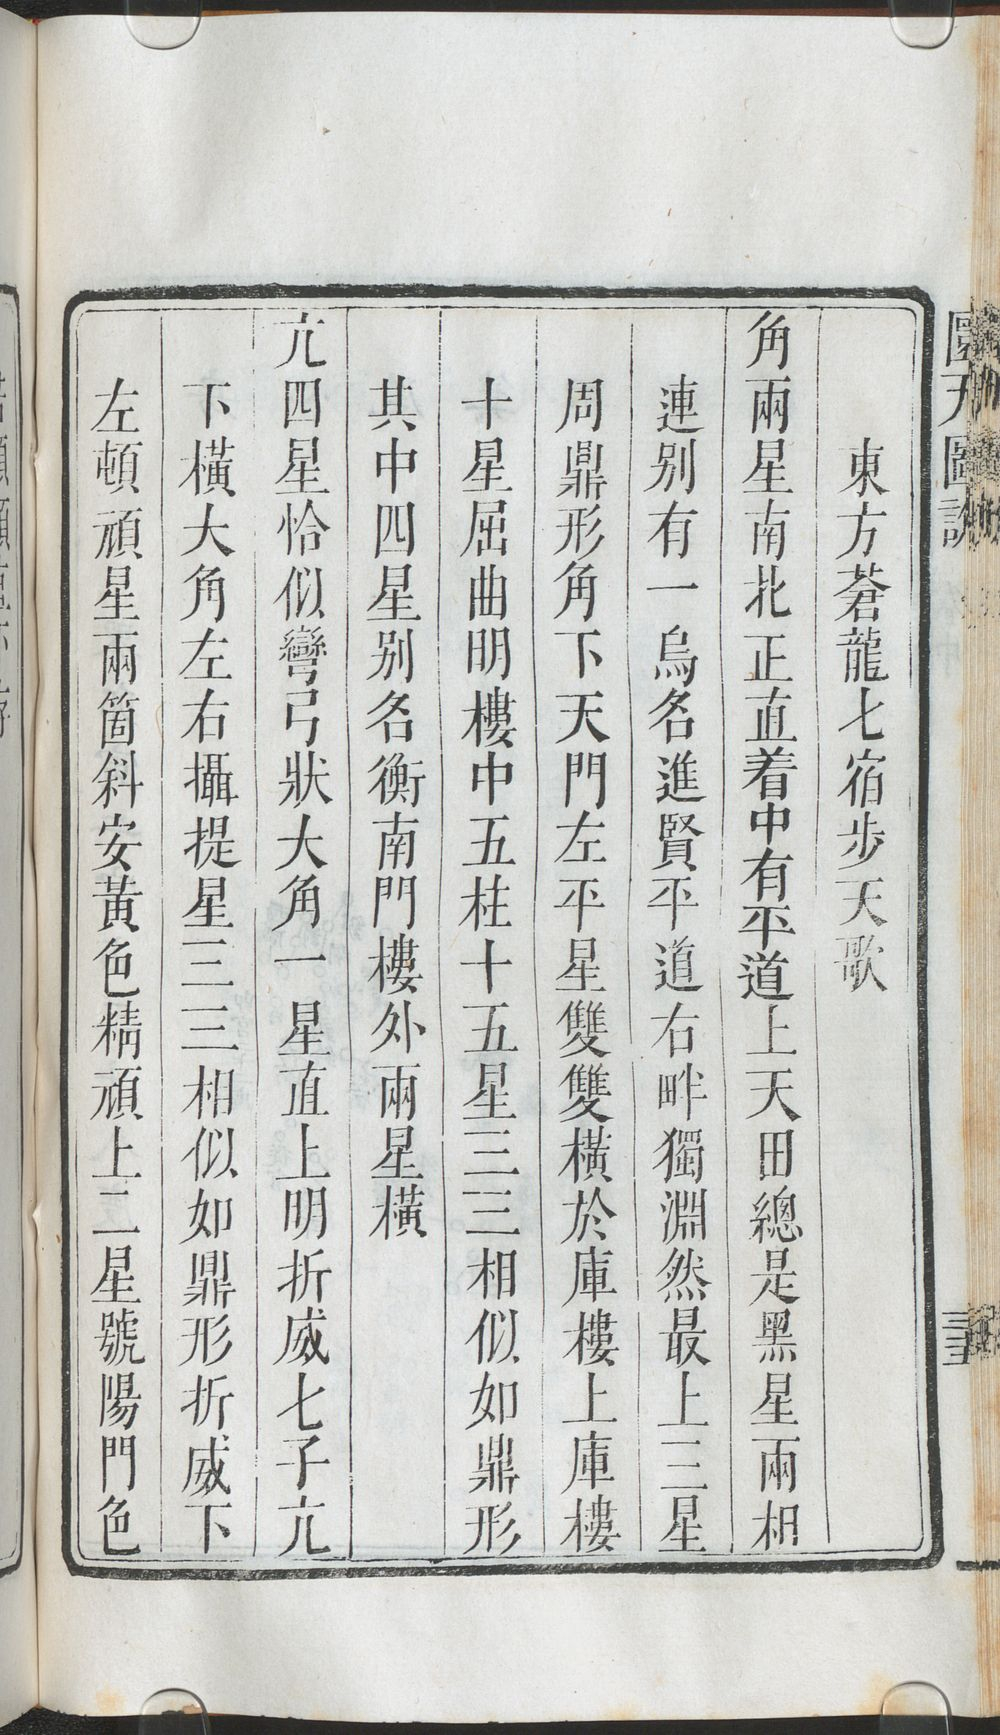 東方蒼龍七宿步天歌
角兩星南北正直着中有平道上天田總是黑星兩相
連别有一烏名進賢平道右畔獨淵然最上三星
周鼎形角下天門左平星雙雙橫於庫樓上庫樓
十星屈曲明樓中五柱十五星三三相似如鼎形
其中四星别名衡南門樓外兩星橫
亢四星恰似彎弓狀大角一星直上明折威七子亢
下橫大角左右攝提星三三相似如鼎形折威下
左頓頑星兩箇斜安黃色精頑上二星號陽門色